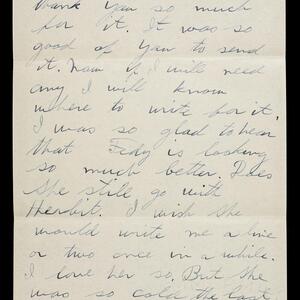 thank you so much
for it. It was so
good of you to send
it. Now if I will need
any I will know
where to write for it.
I was so glad to hear
that Fedy is looking
so much better. Does
she still go with
Herbit. I wish she
would write me a line
or two once in a while.
I love her so. But she
was so cold the last